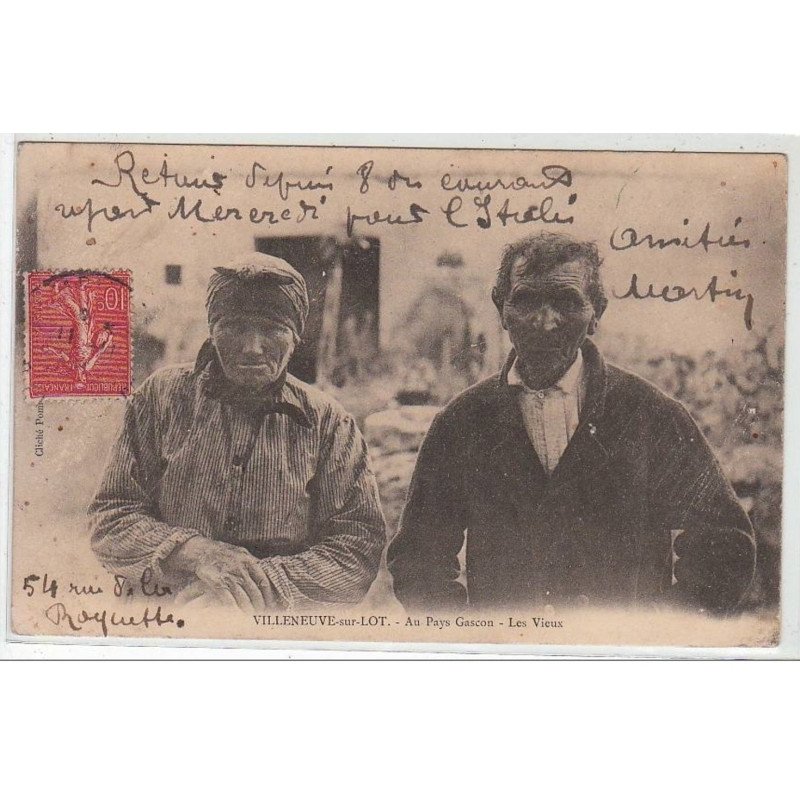 Retenu depuis 8 du courant
repart Mercredi pour l'Italie
Amitiés
Martin
10c
REPUBLIQUE FRANCAISE
Cliché
54 rue de la
Roquette.
VILLENEUVE-sur-LOT. - Au Pays Gascon - Les Vieux